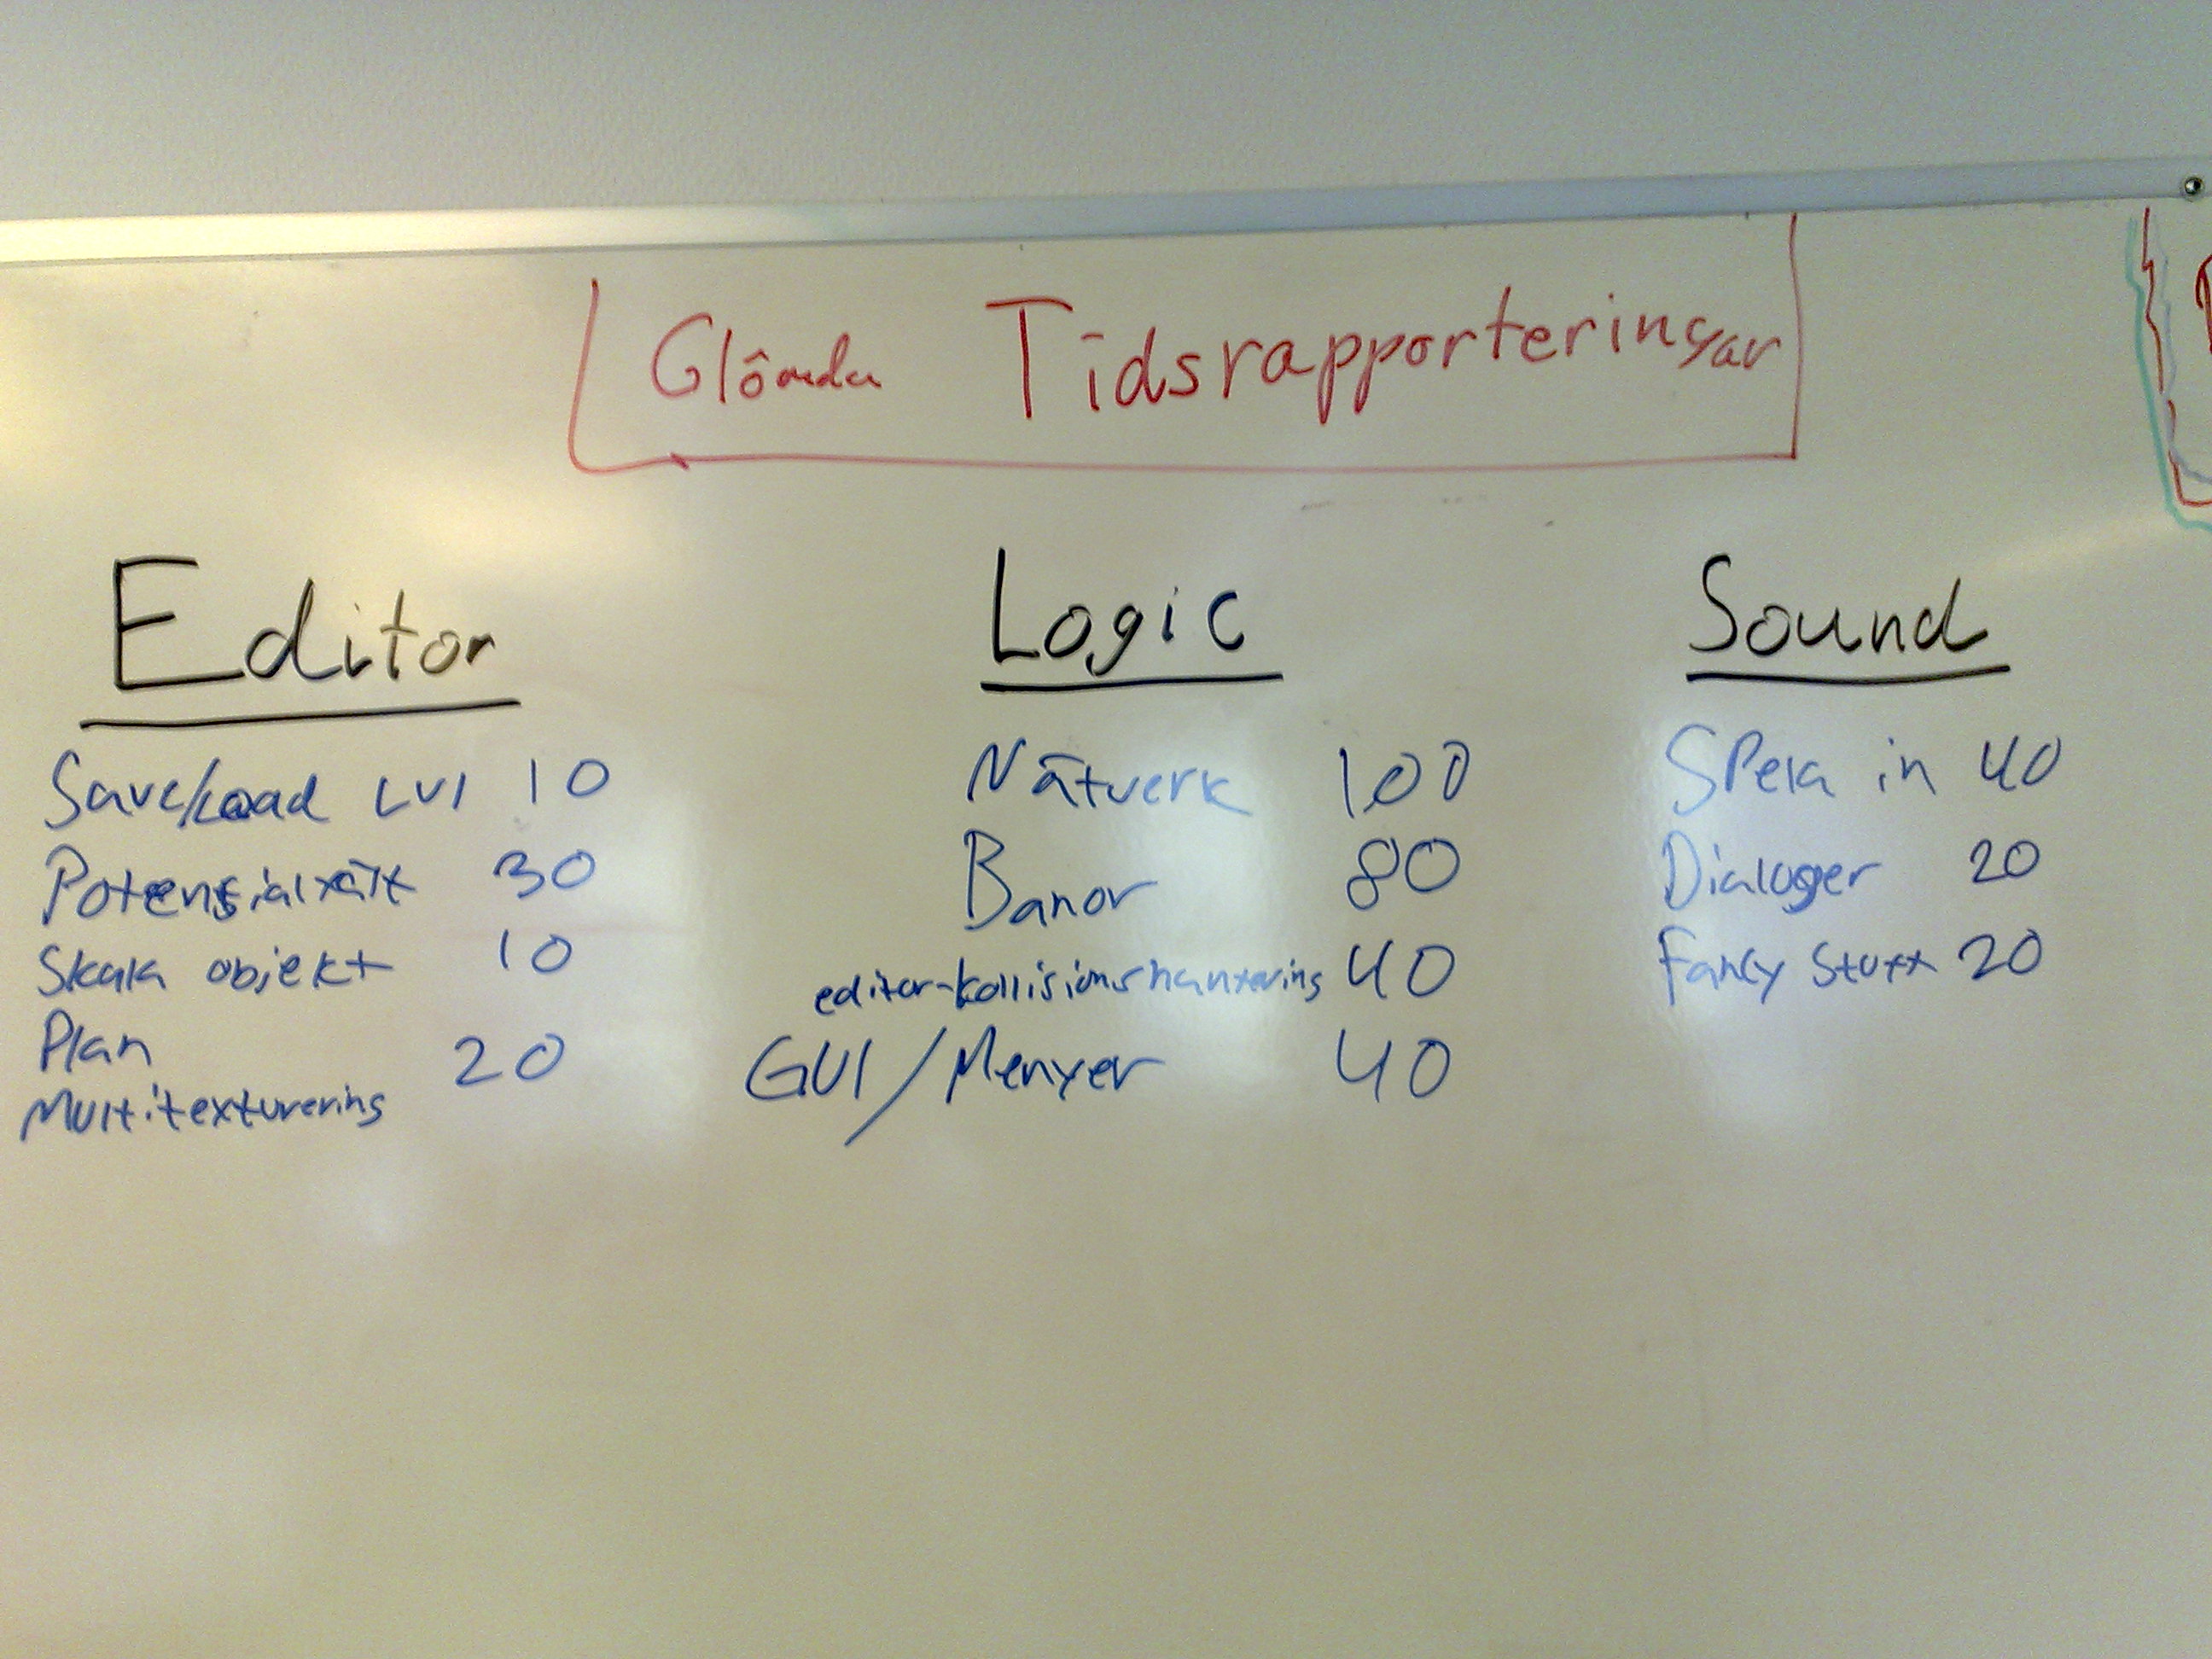 Glömda Tidsrapporteringar
Editor
Save/Load LVl 10
Potensialfält 30
Skala objekt 10
Plan
Multitexturering 20
Logic
Nätverk 100
Banor 80
editor-kollisionshantering 40
GUI/Menyer 40
Sound
Spela in 40
Dialoger 20
Fancy Stuff 20